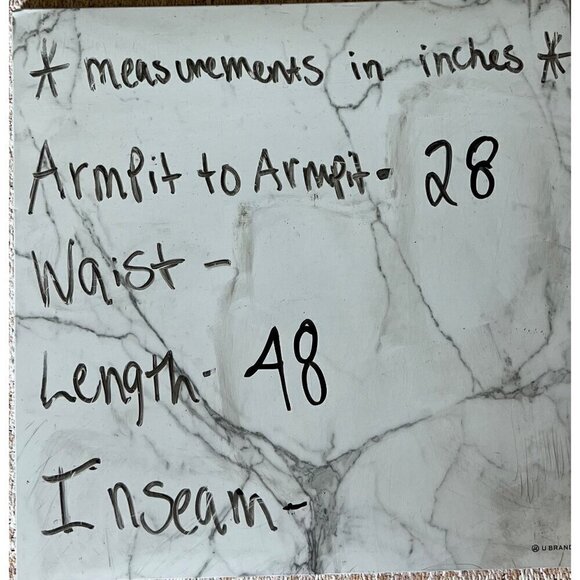 * measurements in inches *
Armpit to Armpit- 28
Waist -
Length- 48
Inseam-
U BRAND